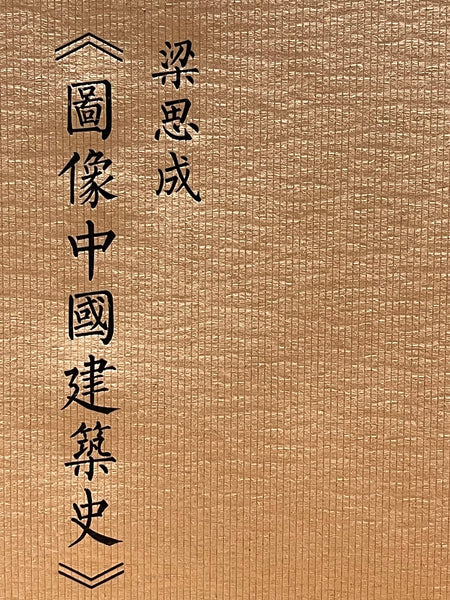 梁思成
《圖像中國建築史》